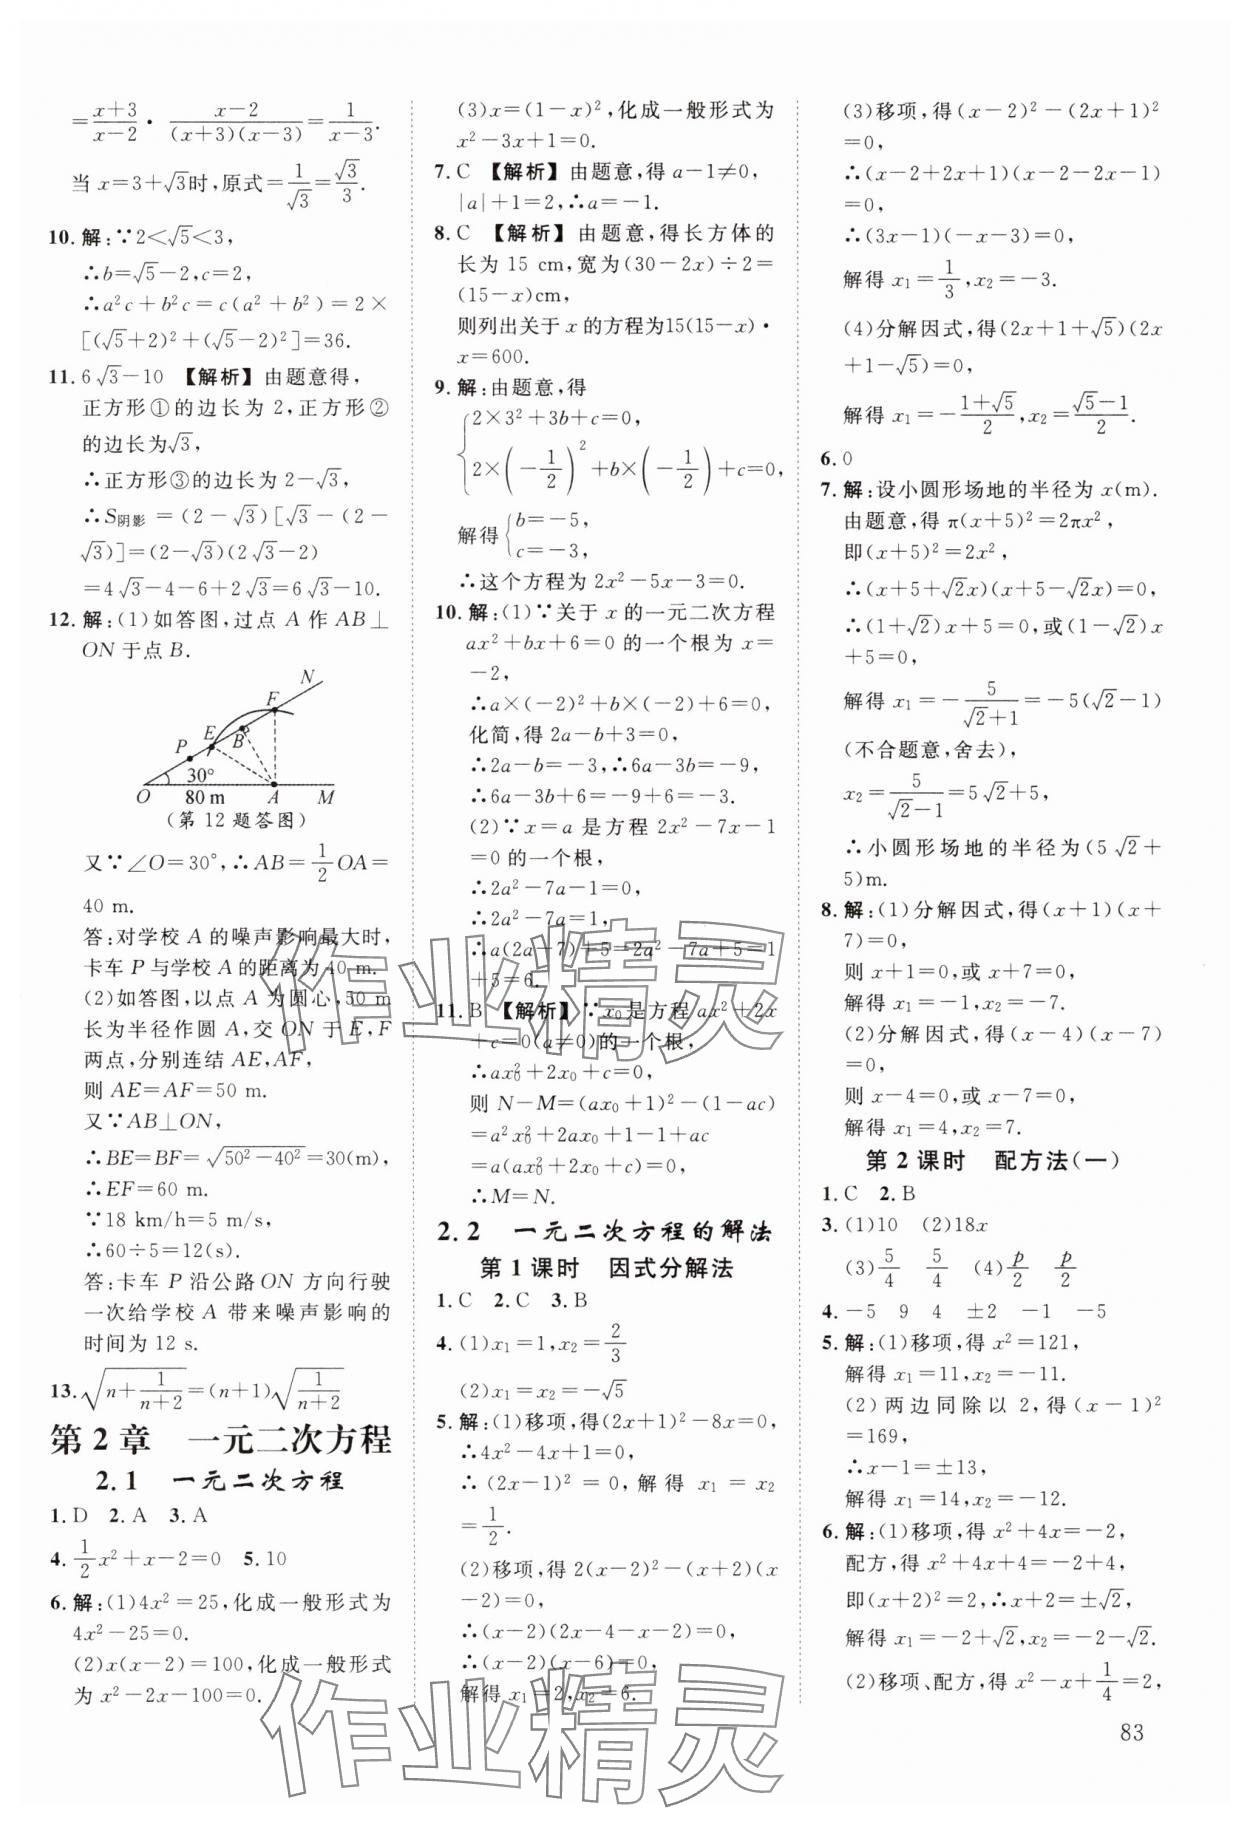 =x+3/x-2·x-2/(x+3)(x-3)=1/x-3.
当 x=3+√3时,原式=1/√3=√3/3.
10.解:∵2<√5<3,
∴b=√5-2,c=2,
∴a²c+b²c=c(a²+b²)=2×
[(√5+2)²+(√5-2)²]=36.
11.6√3-10 【解析】由题意得,
正方形①的边长为 2,正方形②
的边长为√3,
∴正方形③的边长为 2-√3,
∴S阴影=(2-√3)[√3-(2-
√3)]=(2-√3)(2√3-2)
=4√3-4-6+2√3=6√3-10.
12.解:(1)如答图,过点 A 作 AB⊥
ON于点 B.
N
F
E
P
B
30°
O 80 m A M
(第 12 题答图)
又∵∠O=30°,∴AB=1/2 OA=
40 m.
答:对学校 A 的噪声影响最大时,
卡车 P 与学校 A 的距离为 40 m.
(2)如答图,以点 A 为圆心,50 m
长为半径作圆 A,交 ON 于 E,F
两点,分别连结 AE,AF,
则 AE=AF=50 m.
又∵AB⊥ON,
∴BE=BF=√(50²-40²)=30(m),
∴EF=60 m.
∵18 km/h=5 m/s,
∴60÷5=12(s).
答:卡车 P 沿公路 ON 方向行驶
一次给学校 A 带来噪声影响的
时间为 12 s.
13.√(n+1/(n+2))=(n+1)√(1/(n+2))
第 2 章 一元二次方程
2.1 一元二次方程
1.D 2.A 3.A
4.1/2 x²+x-2=0 5.10
6.解:(1)4x²=25,化成一般形式为
4x²-25=0.
(2)x(x-2)=100,化成一般形式
为 x²-2x-100=0.
(3)x=(1-x)²,化成一般形式为
x²-3x+1=0.
7.C 【解析】由题意,得 a-1≠0,
|a|+1=2,∴a=-1.
8.C 【解析】由题意,得长方体的
长为 15 cm,宽为(30-2x)÷2=
(15-x)cm,
则列出关于 x 的方程为15(15-x)·
x=600.
9.解:由题意,得
{2×3²+3b+c=0,
2×(-1/2)²+b×(-1/2)+c=0,
解得{b=-5,
c=-3,
∴这个方程为 2x²-5x-3=0.
10.解:(1)∵关于 x 的一元二次方程
ax²+bx+6=0 的一个根为 x=
-2,
∴a×(-2)²+b×(-2)+6=0,
化简,得 2a-b+3=0,
∴2a-b=-3,∴6a-3b=-9,
∴6a-3b+6=-9+6=-3.
(2)∵x=a 是方程 2x²-7x-1
=0 的一个根,
∴2a²-7a-1=0,
∴2a²-7a=1,
∴a(2a-7)+5=2a²-7a+5=1
+5=6.
11.B 【解析】∵x₀是方程 ax²+2x
+c=0(a≠0)的一个根,
∴ax₀²+2x₀+c=0,
则 N-M=(ax₀+1)²-(1-ac)
=a²x₀²+2ax₀+1-1+ac
=a(ax₀²+2x₀+c)=0,
∴M=N.
2.2 一元二次方程的解法
第 1 课时 因式分解法
1.C 2.C 3.B
4.(1)x₁=1,x₂=2/3
(2)x₁=x₂=-√5
5.解:(1)移项,得(2x+1)²-8x=0,
∴4x²-4x+1=0,
∴(2x-1)²=0,解得 x₁=x₂
=1/2.
(2)移项,得 2(x-2)²-(x+2)(x
-2)=0,
∴(x-2)(2x-4-x-2)=0,
∴(x-2)(x-6)=0,
解得 x₁=2,x₂=6.
(3)移项,得(x-2)²-(2x+1)²
=0,
∴(x-2+2x+1)(x-2-2x-1)
=0,
∴(3x-1)(-x-3)=0,
解得 x₁=1/3,x₂=-3.
(4)分解因式,得(2x+1+√5)(2x
+1-√5)=0,
解得 x₁=-(1+√5)/2,x₂=(√5-1)/2.
6.0
7.解:设小圆形场地的半径为 x(m).
由题意,得 π(x+5)²=2πx²,
即(x+5)²=2x²,
∴(x+5+√2x)(x+5-√2x)=0,
∴(1+√2)x+5=0,或(1-√2)x
+5=0,
解得 x₁=-5/(√2+1)=-5(√2-1)
(不合题意,舍去),
x₂=5/(√2-1)=5√2+5,
∴小圆形场地的半径为(5√2+
5)m.
8.解:(1)分解因式,得(x+1)(x+
7)=0,
则 x+1=0,或 x+7=0,
解得 x₁=-1,x₂=-7.
(2)分解因式,得(x-4)(x-7)
=0,
则 x-4=0,或 x-7=0,
解得 x₁=4,x₂=7.
第 2 课时 配方法(一)
1.C 2.B
3.(1)10 (2)18x
(3)5/4 5/4 (4)p/2 p/2
4.-5 9 4 ±2 -1 -5
5.解:(1)移项,得 x²=121,
解得 x₁=11,x₂=-11.
(2)两边同除以 2,得(x-1)²
=169,
∴x-1=±13,
解得 x₁=14,x₂=-12.
6.解:(1)移项,得 x²+4x=-2,
配方,得 x²+4x+4=-2+4,
即(x+2)²=2,∴x+2=±√2,
解得 x₁=-2+√2,x₂=-2-√2.
(2)移项、配方,得 x²-x+1/4=2,
83
作业精灵
作业精灵